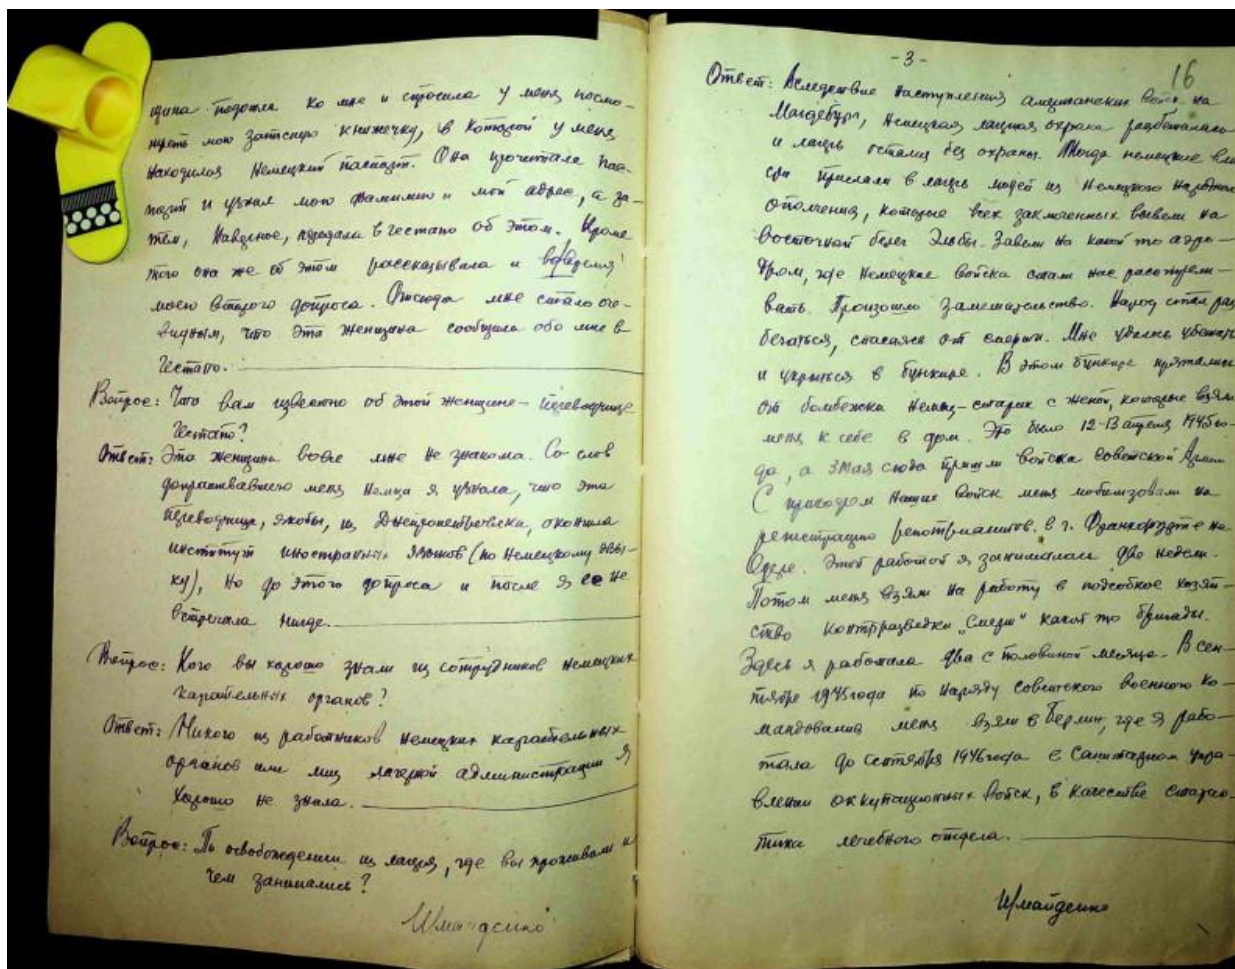 щина подошла ко мне и спросила у меня посмо-
треть мою записную книжечку, в которой у меня
находился немецкий паспорт. Она прочитала пас-
порт и узнала мою фамилию и мой адрес, а за-
тем, наверное, передала в гестапо об этом. Кроме
того она же об этом рассказывала и во время
моего второго допроса. Отсюда мне стало оче-
видным, что эта женщина сообщила обо мне в
гестапо.
Вопрос: Что вам известно об этой женщине - переводчице
гестапо?
Ответ: Эта женщина вовсе мне не знакома. Со слов
допрашивавшего меня немца я узнала, что эта
переводчица, якобы, из Днепропетровска, окончила
институт иностранных языков (по немецкому язы-
ку), но до этого допроса и после я ее не
встречала нигде.
Вопрос: Кого вы хорошо знали из сотрудников немецких
карательных органов?
Ответ: Никого из работников немецких карательных
органов или лиц лагерной администрации я
хорошо не знала.
Вопрос: По освобождении из лагеря, где вы проживали и
чем занимались?
Шмайденко
-3-
16
Ответ: Вследствие наступления американских войск на
Магдебург, немецкая лагерная охрана разбежалась
и лагерь остался без охраны. Тогда немецкие вла
сти прислали в лагерь людей из немецкого народного
ополчения, которые всех заключенных вывели на
восточный берег Эльбы. Завели на какой то аэро-
дром, где немецкие войска стали нас расстрели-
вать. Произошло замешательство. Народ стал раз
бегаться, спасаясь от смерти. Мне удалось убежать
и укрыться в бункере. В этом бункере прятались
от бомбежки немец-старик с женой, которые взяли
меня к себе в дом. Это было 12-13 апреля 1945 го-
да, а 3 мая сюда пришли войска Советской Армии
С приходом наших войск меня мобилизовали на
регистрацию репатриантов в г. Франкфурте на
Одере. Этой работой я занималась две недели.
Потом меня взяли на работу в подсобное хозяй-
ство контрразведки „Смерш" какой то бригады.
Здесь я работала два с половиной месяца. В сен-
тябре 1945 года по наряду советского военного ко-
мандования меня взяли в Берлин, где я рабо-
тала до сентября 1946 года в Санитарном упра-
влении оккупационных войск, в качестве статис-
тика лечебного отдела.
Шмайденко